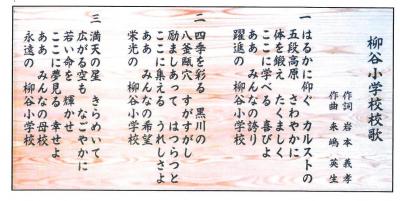 柳谷小学校校歌
作詞 岩本義孝
作曲 来嶋英生
一 はるかに仰ぐ カルストの
五段高原 さわやかに
体を鍛え たくましく
ここに学べる 喜びよ
ああ みんなの誇り
躍進の 柳谷小学校
二 四季を彩る 黒川の
八釜甌穴 すがすがし
励ましあって はつらつと
ここに集える うれしさよ
ああ みんなの希望
栄光の 柳谷小学校
三 満天の星 きらめいて
広がる空も なごやかに
若い命を 輝かせ
ここに夢見る 幸せよ
ああ みんなの母校
永遠の 柳谷小学校